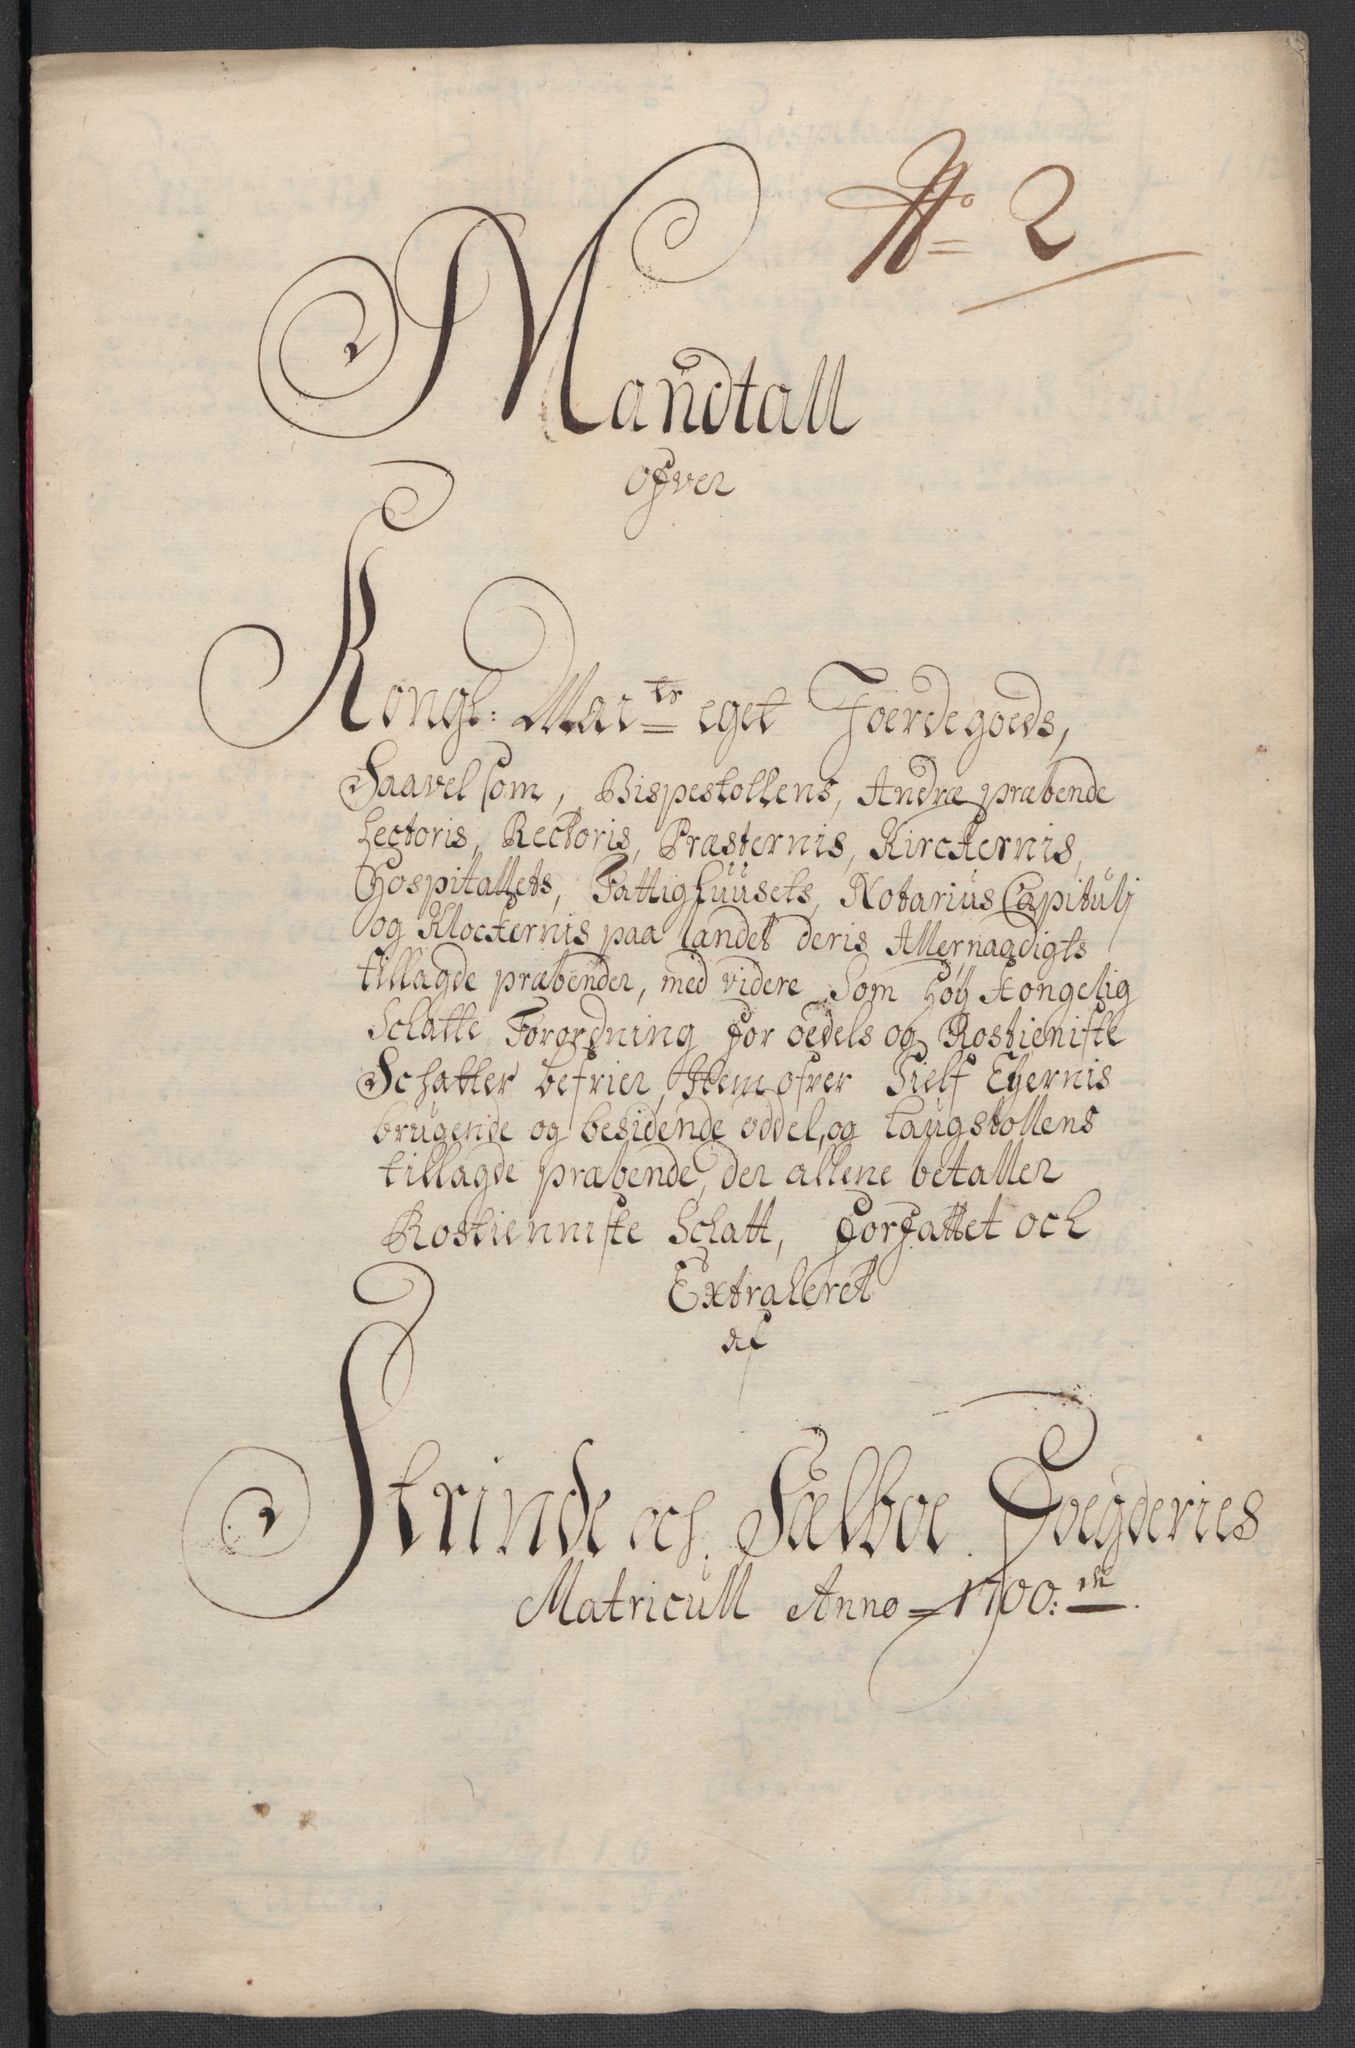 No 2
Mandtall
ofver
Kongl: Mai:ts eget Joerdegoeds,
Saavel som, Bispestollens, Andræ præbende
Lectoris, Rectoris, Præsternis, Kirckernis,
Hospitallets, Fattighuusets, Notarius Capitulj
og Klockernis paa landet deris Allernaadigts
tillagde præbender, med videre Som høy kongelig
Schatte Forordning for oedels og Rostieniste
Schatter befrier, Item ofver Sielf Eyernis
brugende og besidende oddel, og Laugstollens
tillagde præbende, der allene betaller
Rostienniste Schatt, forfattet och
Extraheret
af
Strinde och Sælboe Foegderies
Matricull Anno 1700: